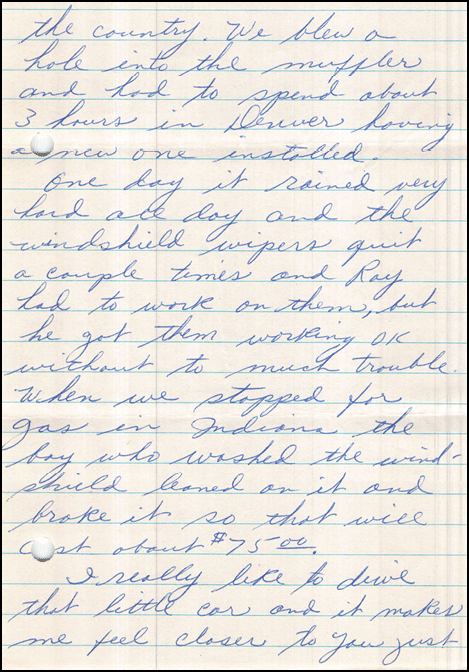 the country. We blew a
hole into the muffler
and had to spend about
3 hours in Denver having
a new one installed.
One day it rained very
hard all day and the
windshield wipers quit
a couple times and Ray
had to work on them, but
he got them working OK
without to much trouble.
When we stopped for
gas in Indiana the
boy who washed the wind-
shield leaned on it and
broke it so that will
cost about $75.00.
I really like to dive
that little car and it makes
me feel closer to you just